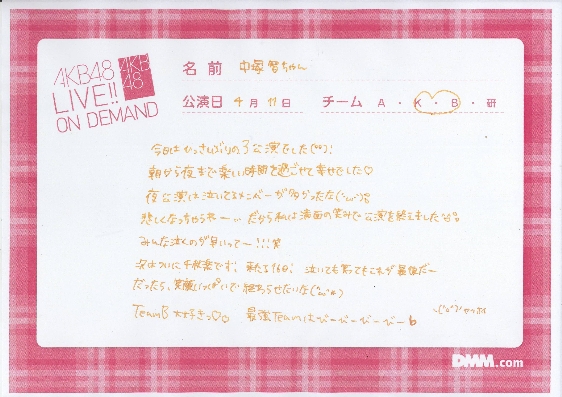 AKB48
LIVE!!
ON DEMAND
AKB
48
名前 中塚智ちゃん
公演日 4月11日 チーム A・K・B・研
今日はひっさしぶりの3公演をした(°°)!
朝から夜まで楽しい時間を過ごせて幸せでした♡
夜公演は泣いてるメンバーが多かったな
悲しくなっちゃうわー だから私は満面の笑みで公演を終えました
みんな泣くのが早いってー!!!笑
次はついに千秋楽です、来たる16日、泣いても笑ってもこれが最後だー
だったら、笑顔いっぱいで終わらせたいな
TeamB 大好きっ♡♡ 最強Teamはびーびーびーびー
DMM.com